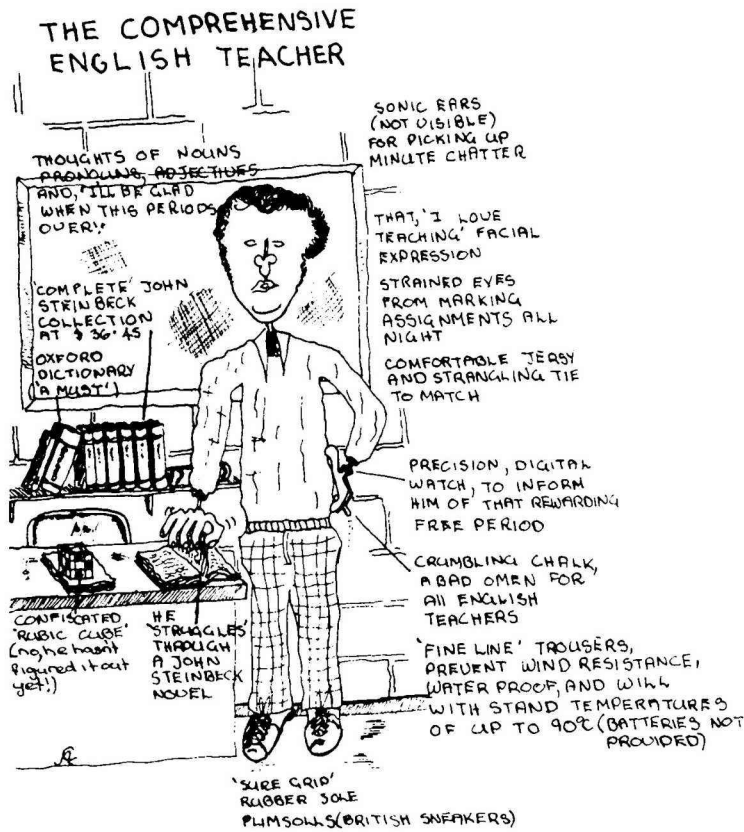 THE COMPREHENSIVE
ENGLISH TEACHER
THOUGHTS OF NOUNS
PRONOUNS, ADJECTIVES
AND, 'I'LL BE GLAD
WHEN THIS PERIODS
OVER!'
'COMPLETE' JOHN
STEINBECK
COLLECTION
AT $36.45
OXFORD
DICTIONARY
('A MUST')
CONFISCATED
'RUBIC CUBE'
(no, he hasn't
figured it out
yet!)
HE
'STRUGGLES'
THROUGH
A JOHN
STEINBECK
NOVEL
SONIC EARS
(NOT VISIBLE)
FOR PICKING UP
MINUTE CHATTER
THAT, 'I LOVE
TEACHING' FACIAL
EXPRESSION
STRAINED EYES
FROM MARKING
ASSIGNMENTS ALL
NIGHT
COMFORTABLE JERSY
AND STRANGLING TIE
TO MATCH
PRECISION, DIGITAL
WATCH, TO INFORM
HIM OF THAT REWARDING
FREE PERIOD
CRUMBLING CHALK,
A BAD OMEN FOR
All ENGLISH
TEACHERS
'FINE LINE' TROUSERS,
PREVENT WIND RESISTANCE,
WATER PROOF, AND WILL
WITH STAND TEMPERATURES
OF UP TO 90°C (BATTERIES NOT
PROVIDED)
'SURE GRIP'
RUBBER SOLE
PLIMSOLLS (BRITISH SNEAKERS)